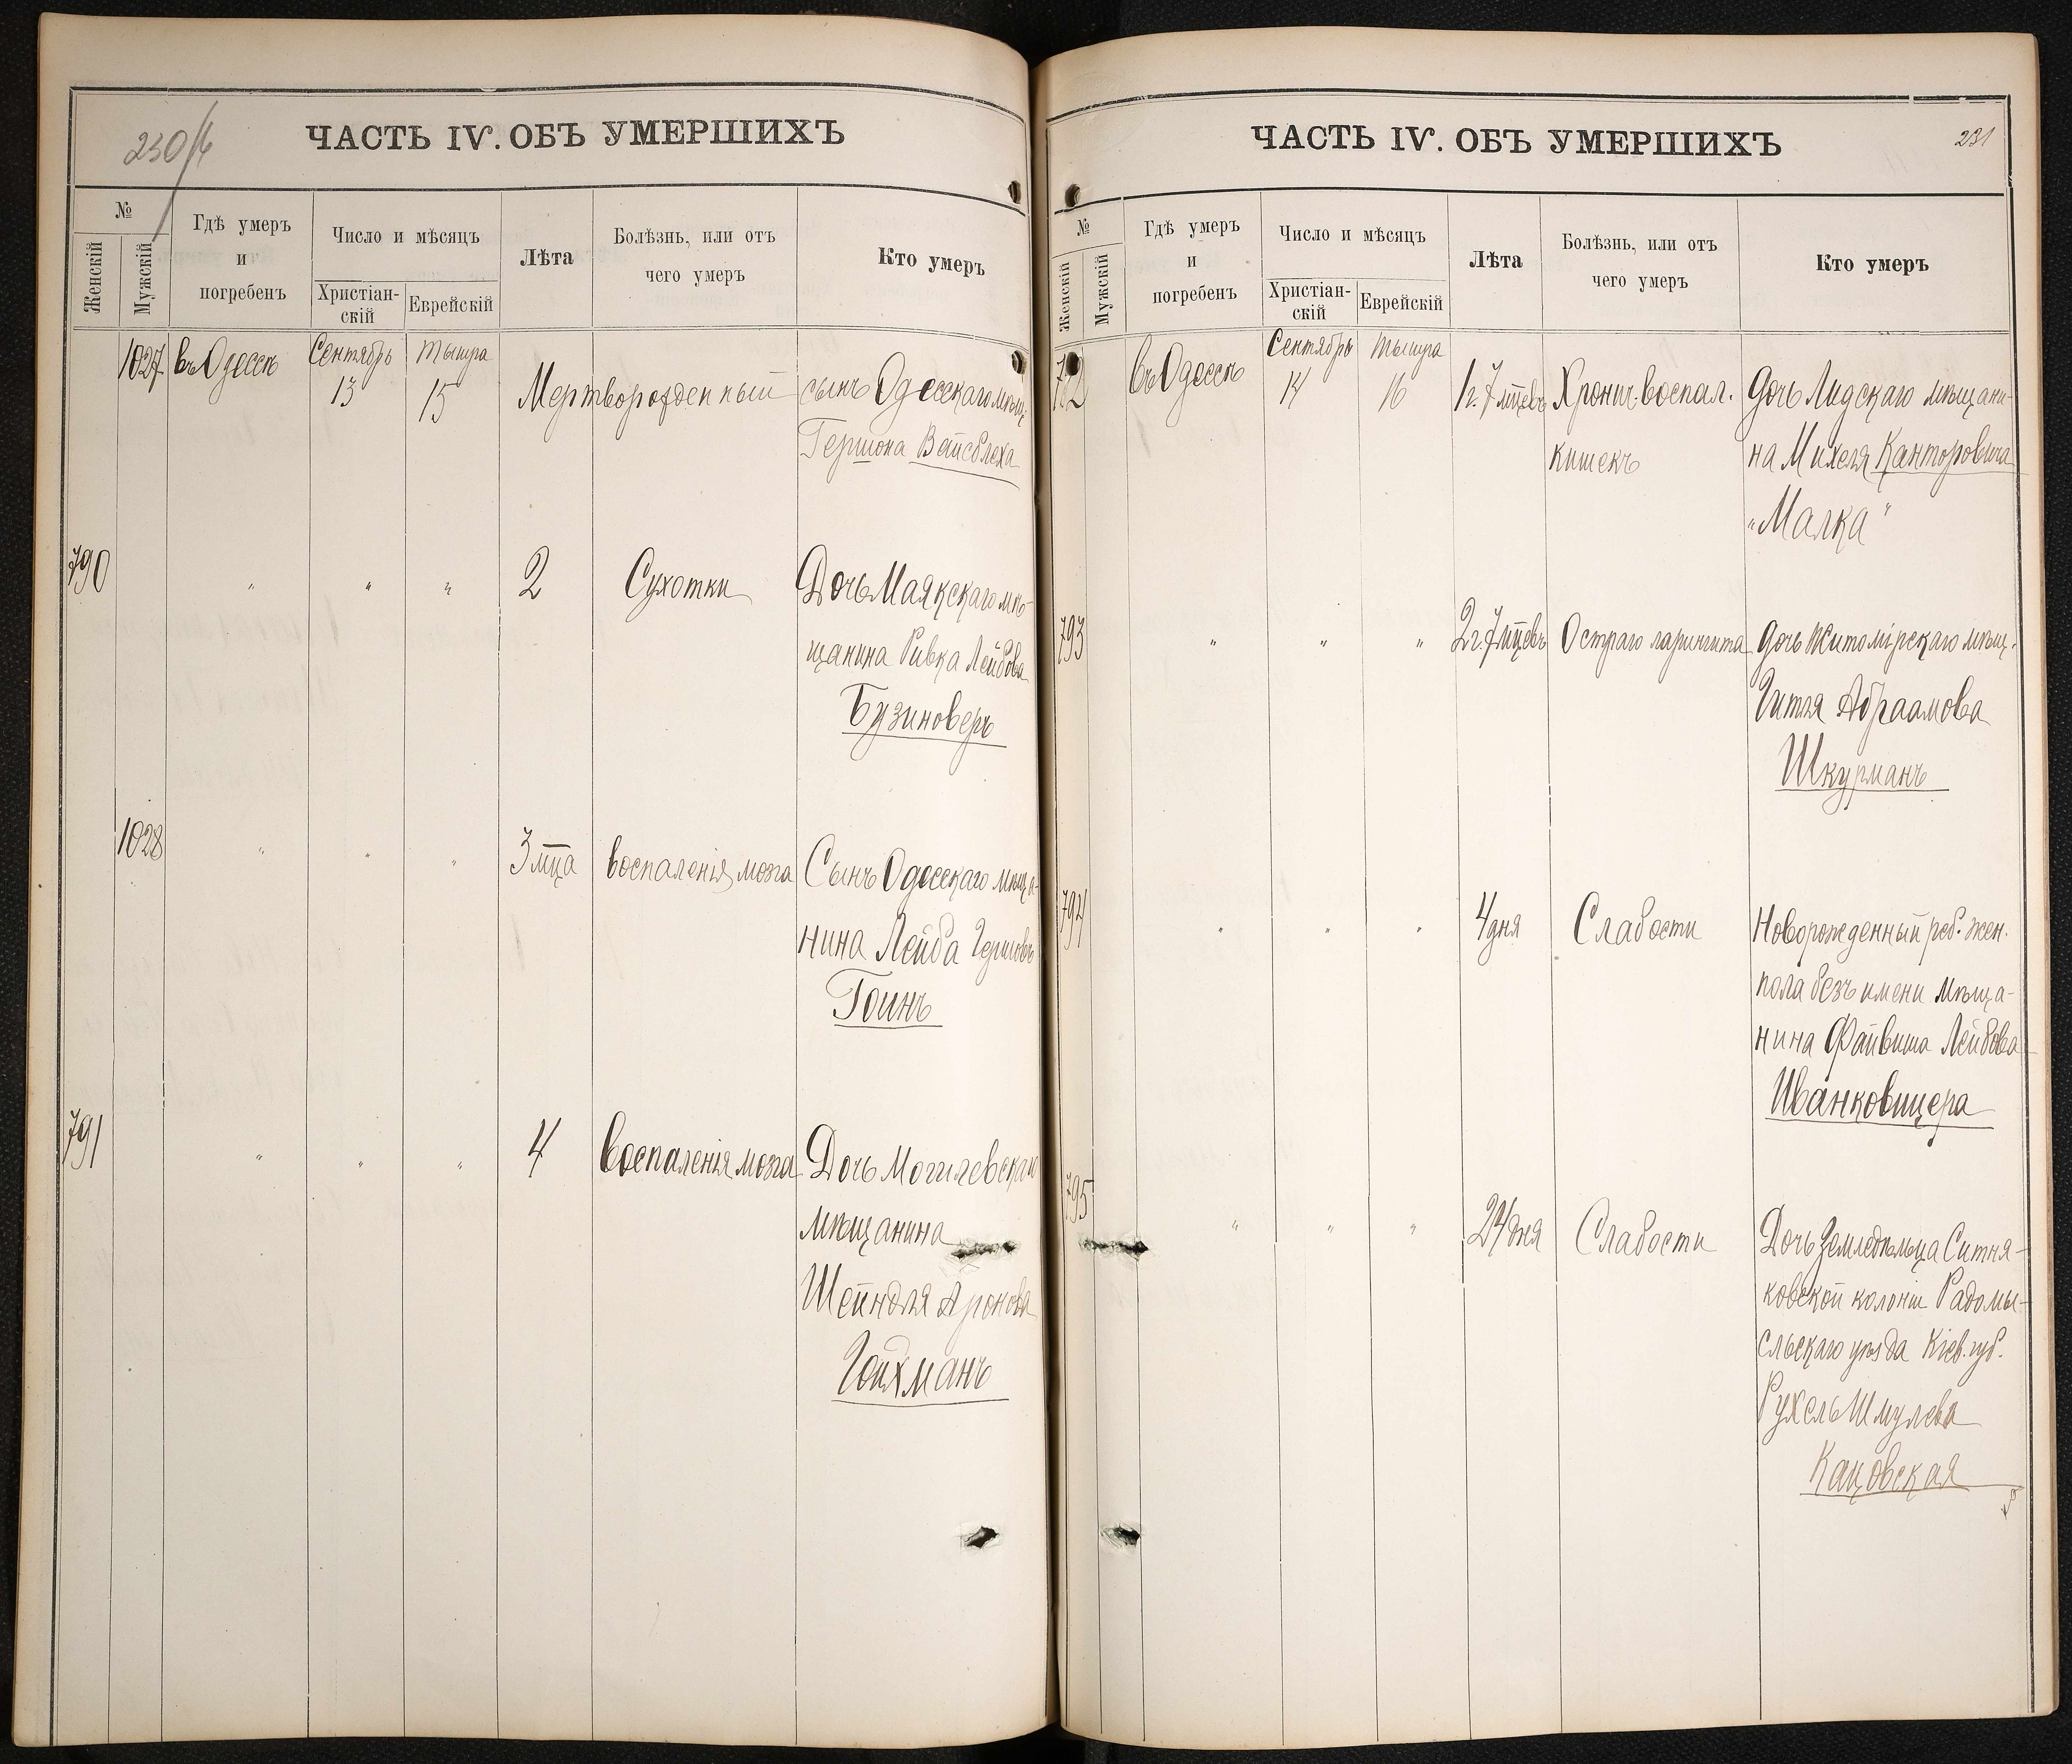 230/6
ЧАСТЬ IV. ОБЪ УМЕРШИХЪ
№
Женскій
Мужскій
Гдѣ умеръ
и
погребенъ
Число и мѣсяцъ
Христіан-
скій
Еврейскій
Лѣта
Болѣзнь, или отъ
чего умеръ
Кто умеръ
1027 въ Одессѣ Сентябрь 13 Тышра 15 Мертворожденный сынъ Одесскаго мѣщ.
Гершона Вейсблеха
790 " " " 2 Сухотки Дочь Маякскаго мѣ-
щанина Ривка Лейбова
Бузиноверъ
1028 " " " 3 мца воспаленія мозга Сынъ Одесскаго мѣща-
нина Лейба Гершовъ
Гоинъ
791 " " " 4 воспаленія мозга Дочь Могилевскаго
мѣщанина
Шейндля Аронова
Гойхманъ
231
ЧАСТЬ IV. ОБЪ УМЕРШИХЪ
№
Женскій
Мужскій
Гдѣ умеръ
и
погребенъ
Число и мѣсяцъ
Христіан-
скій
Еврейскій
Лѣта
Болѣзнь, или отъ
чего умеръ
Кто умеръ
792 въ Одессѣ Сентябрь 14 Тышра 16 1 г. 7 мцевъ Хронич. воспал. дочь Лидскаго мѣщани-
кишекъ на Михеля Канторовича
„Малка"
793 " " " 2 г. 7 мцевъ Остраго ларингита дочь Житомірскаго мѣщ.
Гитля Абраамова
Шкурманъ
794 " " " 4 дня Слабости Новорожденный реб. жен.
пола безъ имени мѣща-
нина Файвиша Лейбова
Иванковицера
795 " " " 24 дня Слабости Дочь Земледѣльца Ситня-
ковской колоніи Радомы-
сльскаго уѣзда Кіев. губ.
Рухель Шмулева
Кацовская